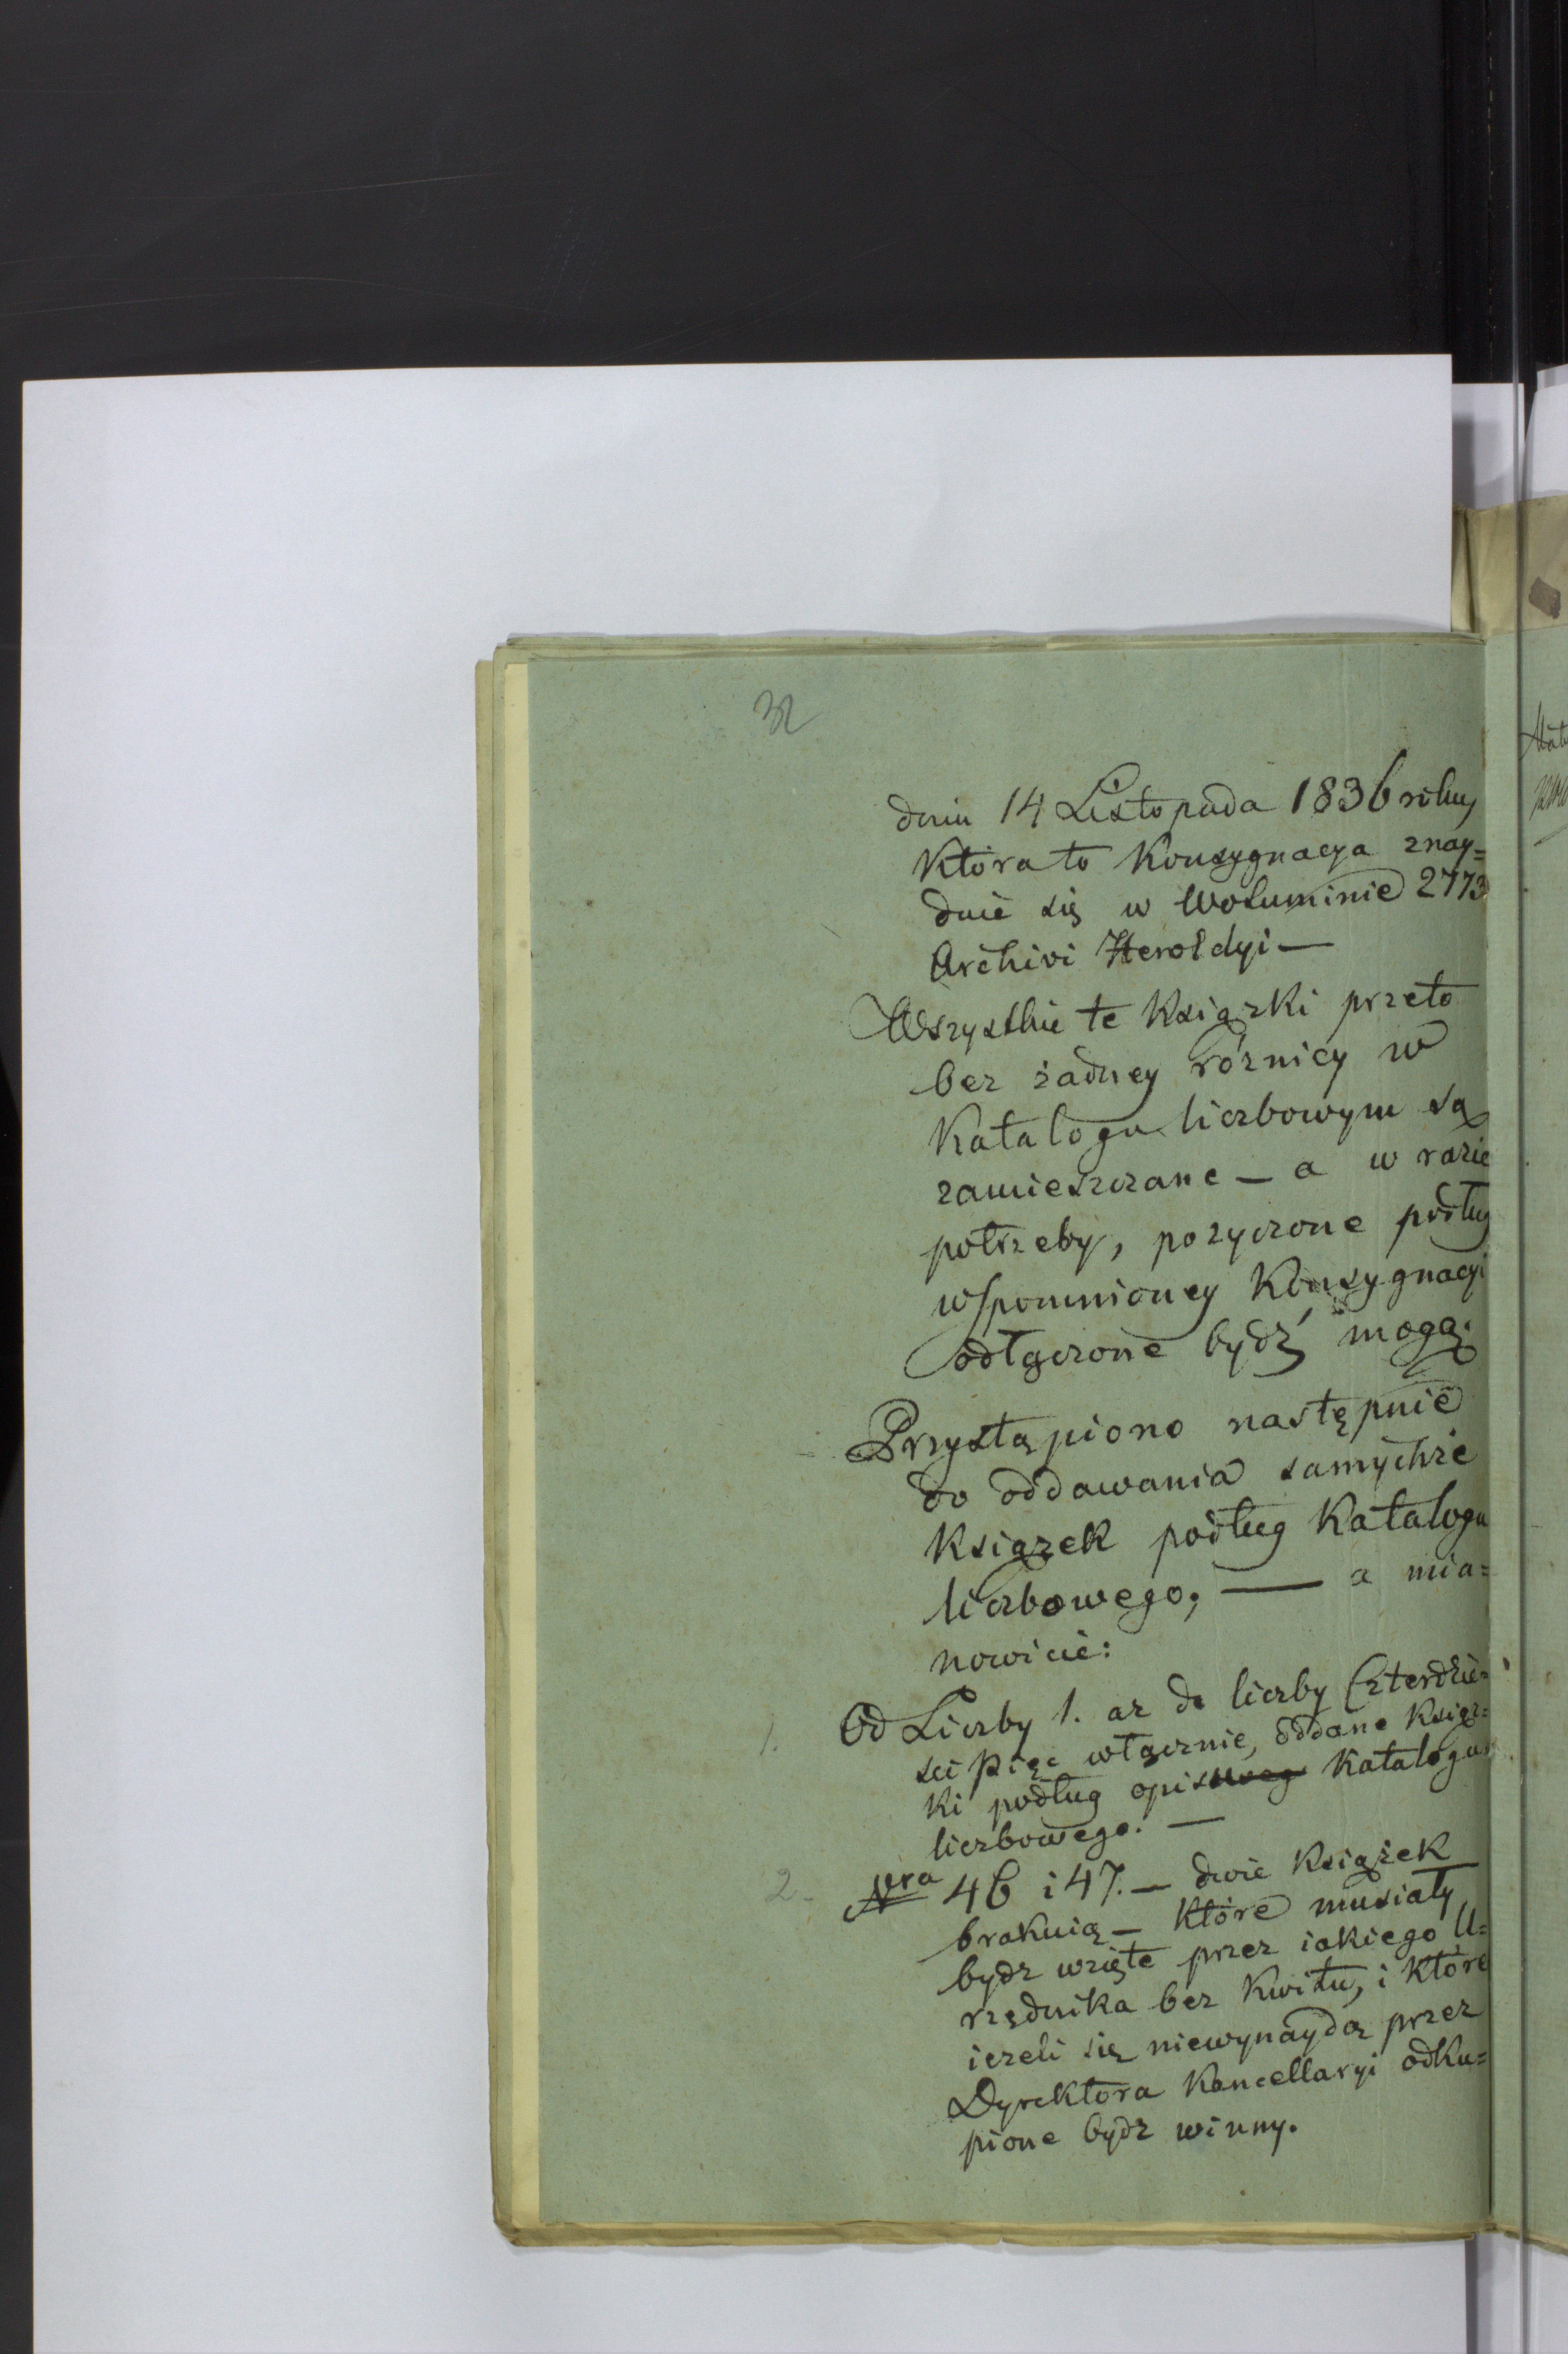 32
dniu 14 Listopada 1836 roku,
która to Konsygnacya znay=
duie się w Woluminie 2773
Archivi Heroldyi —
Wszystkie te Książki przeto
bez żadney różnicy w
Katalogu liczbowym są
zamieszczane — a w razie
potrzeby, pozyczone podług
wspomnioney Konsygnacyi
odłączone bydź mogą.
Przystąpiono następnie
do oddawania samychże
Książek podług Katalogu
liczbowego; — a mia=
nowicie:
1. Od Liczby 1. az do liczby Czterdzie=
sci Pięc włącznie, oddane Książ=
ki podług opisu Katalogu
liczbowego. —
2. Nra 46 i 47. — dwie Książek
brakuią — Które musiały
bydz wzięte przez iakiego U=
rzędnika bez Kwitu, i Które
iezeli się niewynaydą przez
Dyrektora Kancellaryi odku=
pione bydz winny.